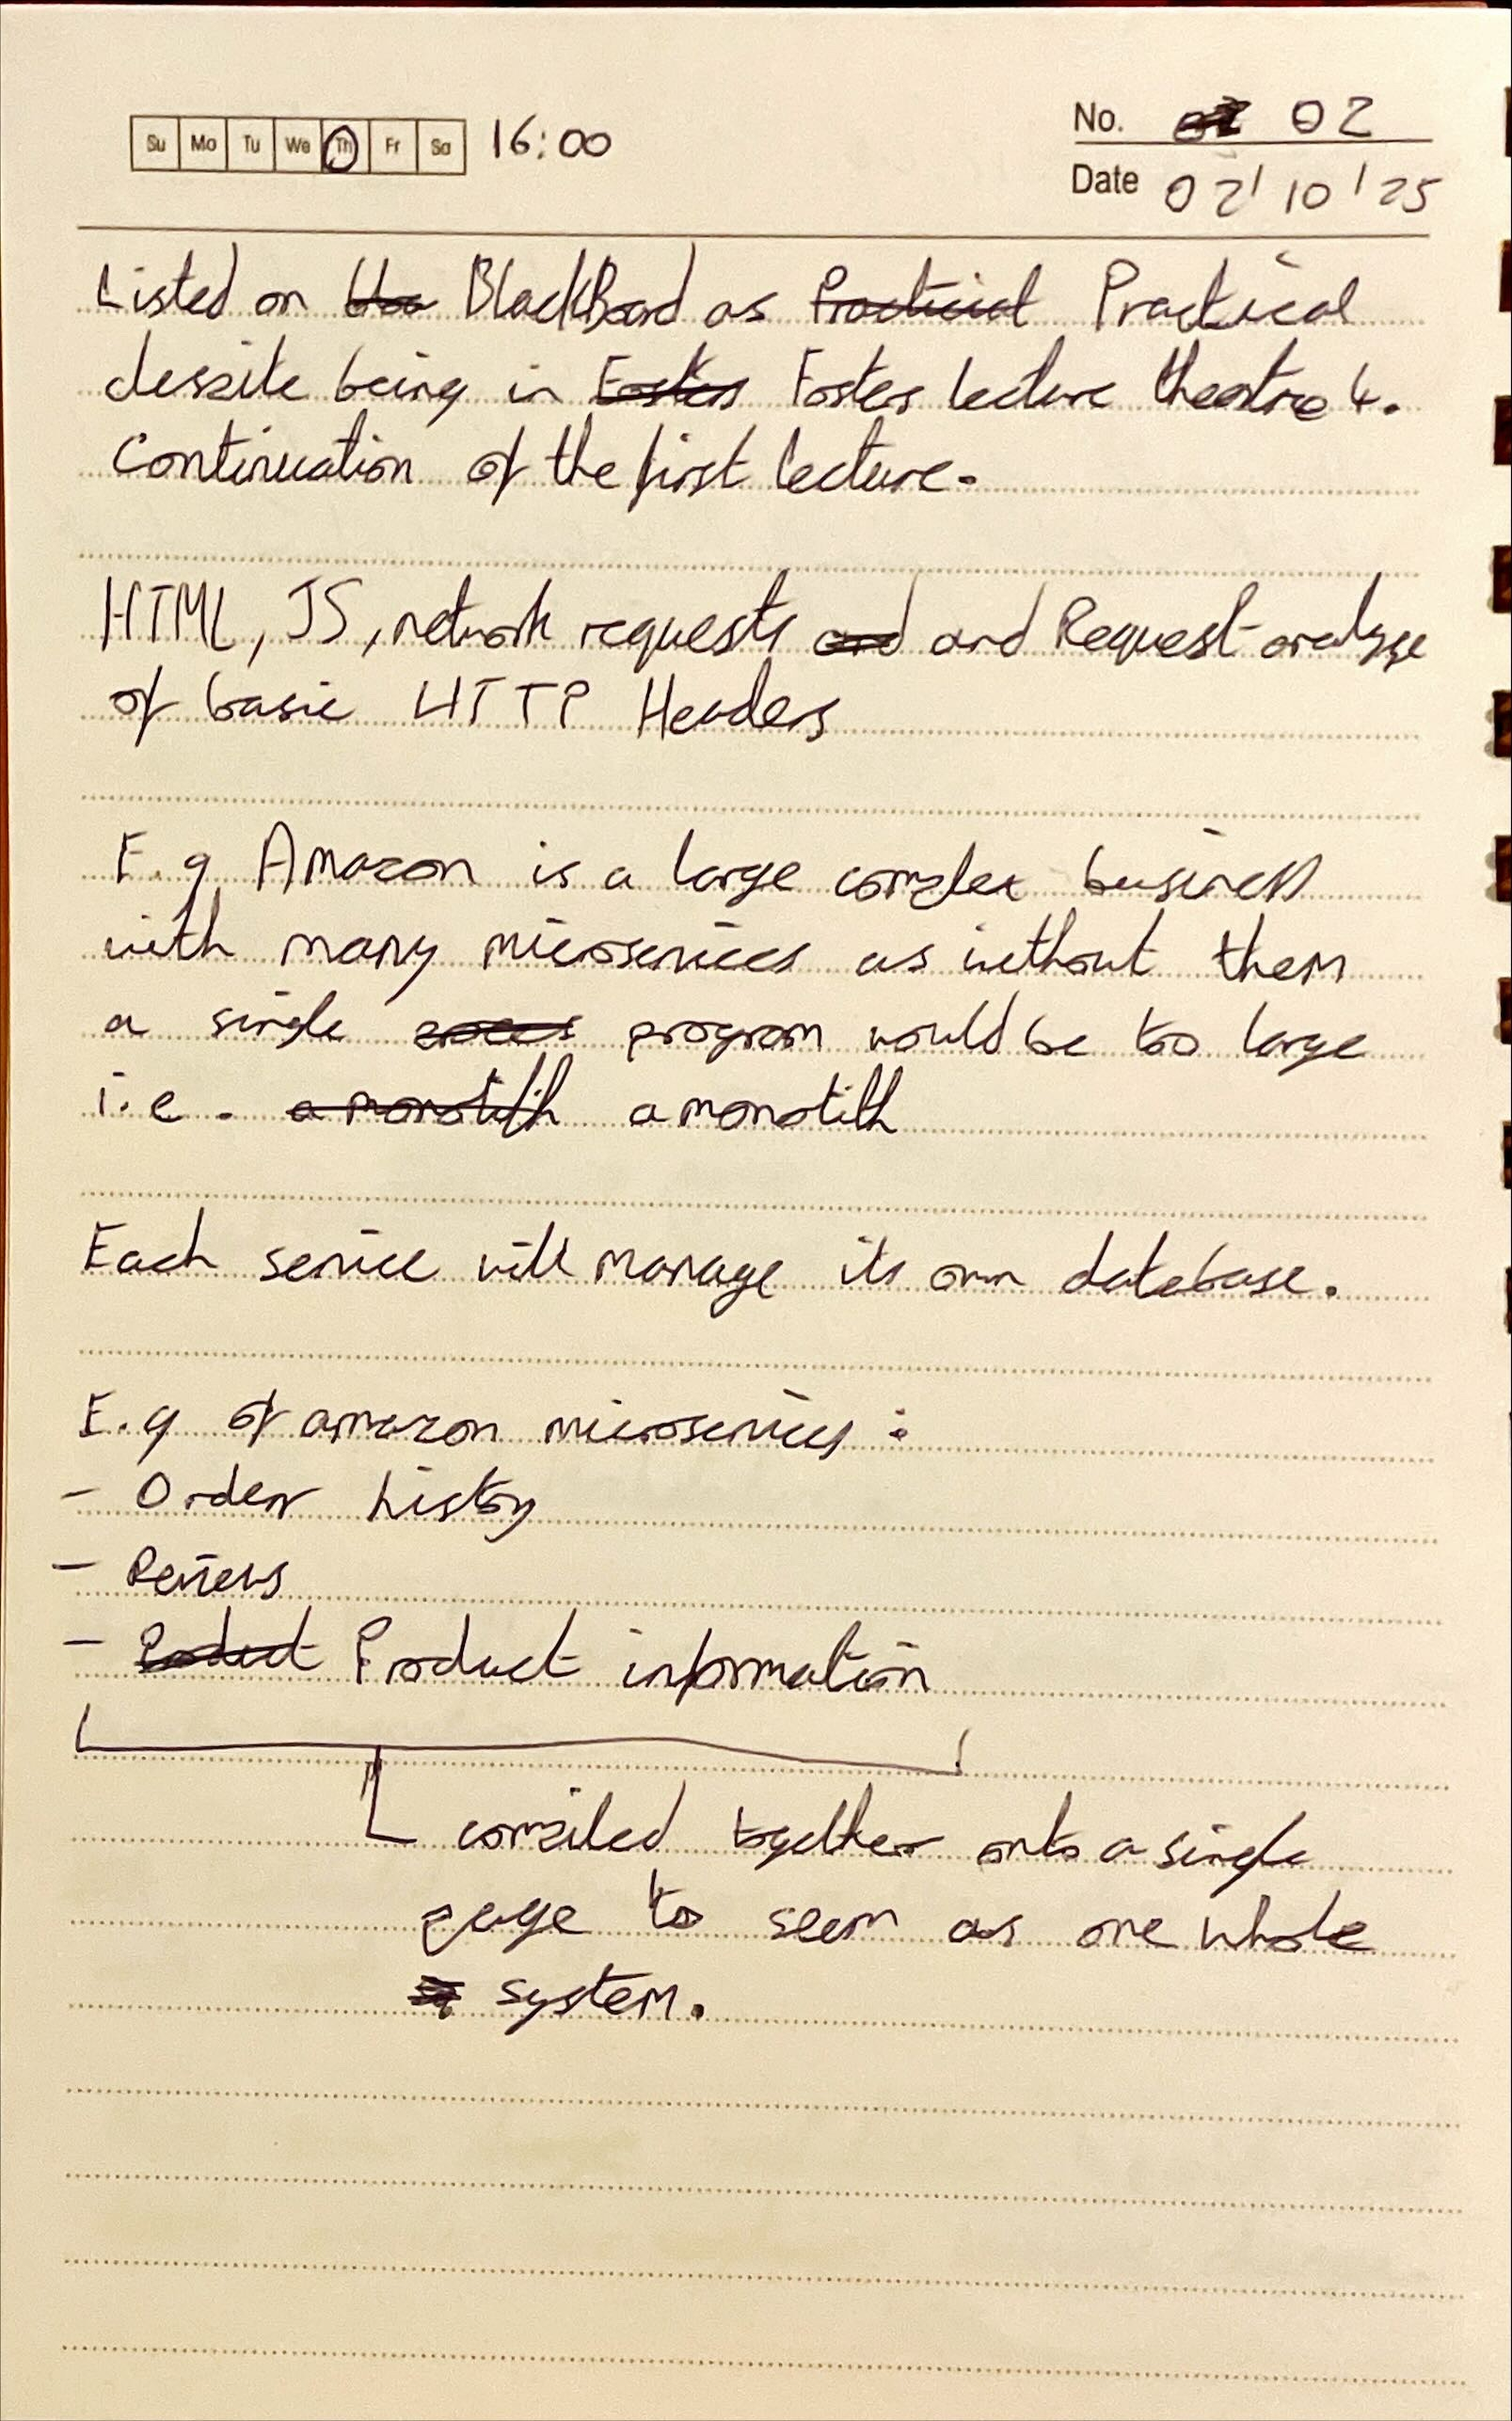 Su Mo Tu We Th Fr Sa 16:00
No. 02
Date 02/10/25
Listed on BlackBoard as Practical Practical
despite being in Foster Foster lecture theatre 4.
Continuation of the first lecture.
HTML, JS, network requests and and Request analyse
of basic HTTP Headers
E.g Amazon is a large complex business
with many microservices as without them
a single process program would be too large
i.e. a monotilth a monotilth
Each service will manage its own database.
E.g of amazon microservices :
- Order history
- Reviews
- Product Product information
compiled together onto a single
page to seem as one whole
system.